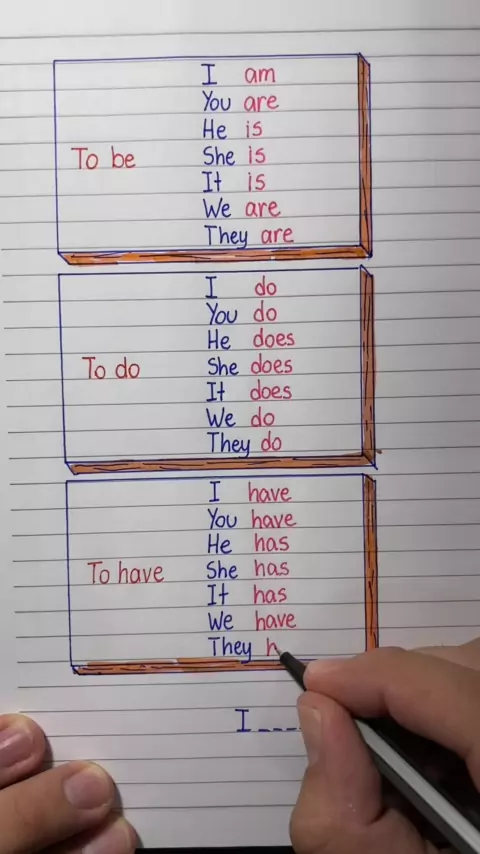 I am
You are
He is
To be She is
It is
We are
They are
I do
You do
He does
To do She does
It does
We do
They do
I have
You have
He has
To have She has
It has
We have
They h
I ----